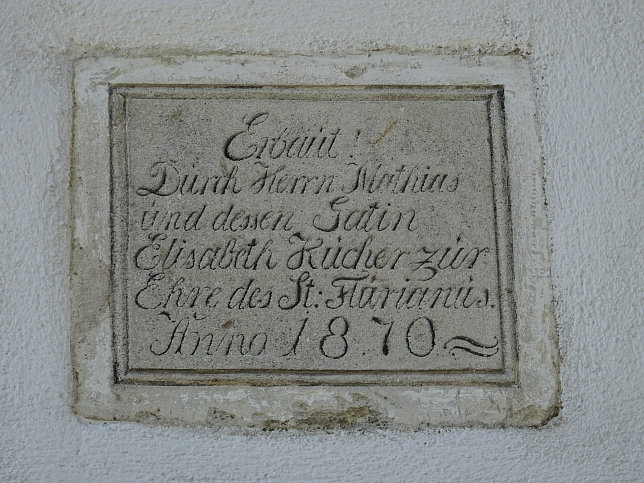 Erbaut!
Durch Herrn Mathias
und dessen Gatin
Elisabeth Kucher zur
Ehre des St: Flurianus.
Anno 1870 ~